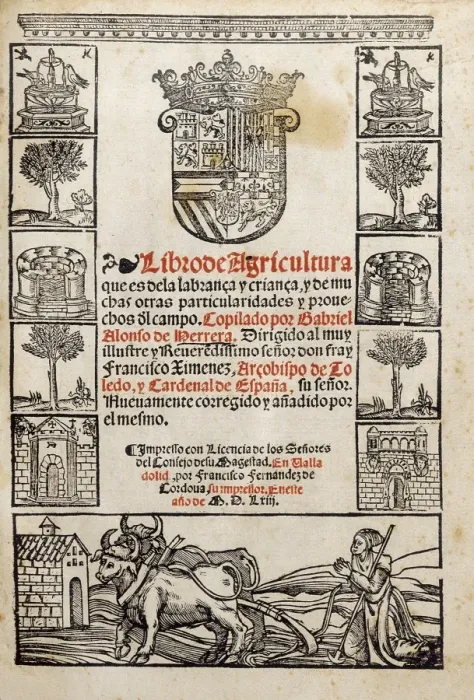 Libro de Agricultura
que es dela labrança y criança, y de mu
chas otras particularidades y proue-
chos dl campo. Copilado por Gabriel
Alonso de Herrera. Dirigido al muy
illustre y Reuerẽdissimo señor don fray
Francisco Ximenez, Arçobispo de To
ledo, y Cardenal de España, su señor.
Nueuamente corregido y añadido por
el mesmo.
¶ Impresso con Licencia de los Señores
del Consejo de su Magestad. En Valla
dolid, por Francisco Fernandez de
Cordoua su impressor. En este
año de M. D. Lxiij.